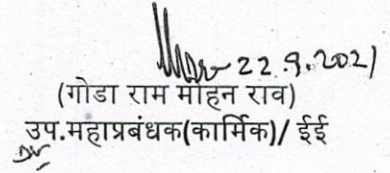 22.9.2021
(गोडा राम मोहन राव)
उप.महाप्रबंधक(कार्मिक)/ ईई